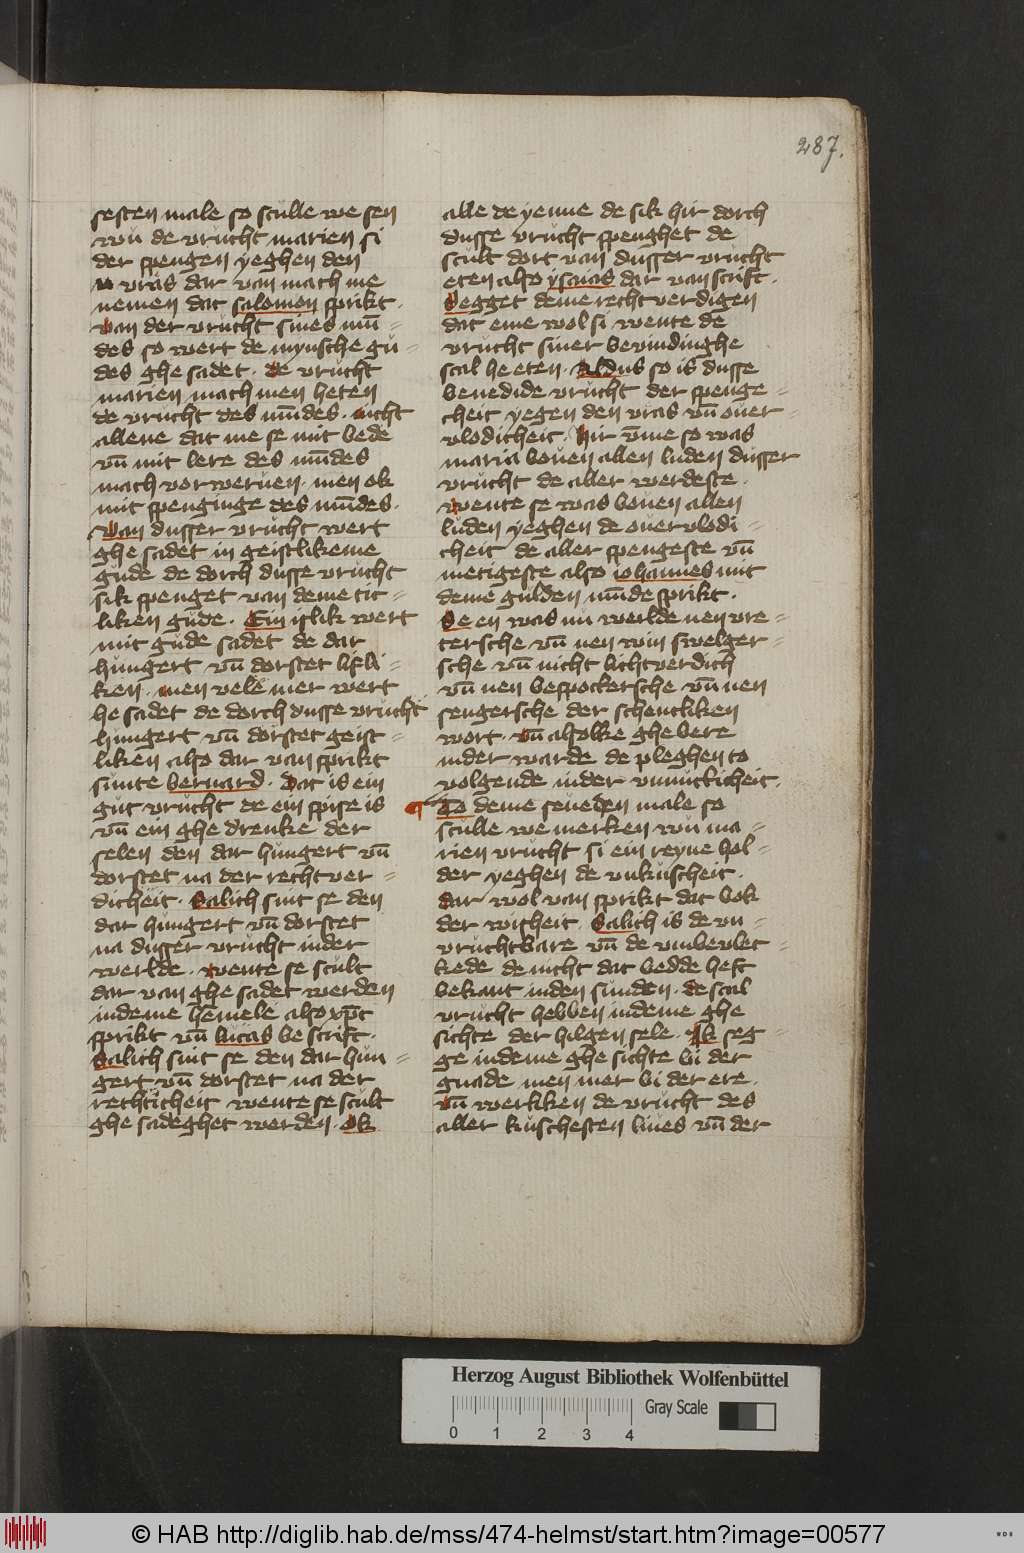 287.
sesten male so sculle we sen
wu de vrucht marien si
der spengen yeghen den
vras dar van mach me
nemen dat salomon sprikt.
van der vrucht sines mu̅-
des so wert de mynsche gu-
des ghe sadet. De vrucht
marien mach men heten
de vrucht des mu̅des. nicht
allene dat me se mit bede
vn̅ mit lere des mu̅des
mach vorweruen. men ok
mit spenginge des mu̅des.
Van dusser vrucht wert
ghe sadet in geistlikeme
gude de dorch dusse vrucht
sik spenget van deme tit-
liken gude. Ein islik wert
mit gude sadet de dar
hungert vn̅ dorstet lifli-
ken. men vele mer wert
he sadet de dorch dusse vrucht
hungert vn̅ dorstet geist-
liken also dar van sprikt
sunte bernard. Dat is ein
gut vrucht de ein spise is
vn̅ ein ghe drenke der
selen den dar hungert vn̅
dorstet na der rechtver-
dicheit. Salich sint se den
dar hungert vn̅ dorstet
na dusser vrucht in der
werlde. wente se scult
dar van ghe sadet werden
in deme hemele also xp̅c
sprikt vn̅ lucas be scrift.
Salich sint se den dar hun-
gert vn̅ dorstet na der
rechticheit wente se scult
ghe sadeghet werden. Ok
alle de yenne de sik hir dorch
dusse vrucht spenghet de
scult dort van dusser vrucht
eten also ysaias dar van scrift.
Segget deme rechtverdigen
dat eme wol si wente de
vrucht siner bevindinghe
scal he eten. Aldus so is dusse
benedide vrucht der spenge-
cheit yegen den vras vn̅ ouer-
vlodicheit. Hir v̅me so was
maria bouen allen luden dusser
vrucht de aller werdeste.
wente se was bouen allen
luden yeghen de ouervlodi-
cheit de aller spengeste vn̅
metigeste also iohannes mit
deme gulden mu̅de sprikt.
Se en was nu werlde nen vre-
tersche vn̅ nen win swelger-
sche vn̅ nicht lichtverdich
vn̅ nen bespottersche vn̅ nen
sengersche der schentliken
wort. vn̅ alsolke ghe bere
in der warde de pleghen to
volgende in der vnmeticheit.
To deme seueden male so
sculle we merken wu ma-
rien vrucht si ein reyne hol-
der yeghen de vnkuscheit.
dar wol van sprikt dat bok
der wisheit. Salich is de vn-
vruchtbare vn̅ de vnbevlet-
kede de nicht dat bedde heft
bekant in den sunden. de scal
vrucht hebben in deme ghe
sichte der hilgen sele. Ik seg
ge in deme ghe sichte bi der
gnade men mer bi der ere.
vn̅ werkiken de vrucht des
aller kuschesten liues vn̅ der
Herzog August Bibliothek Wolfenbüttel
Gray Scale
0 1 2 3 4
© HAB http://diglib.hab.de/mss/474-helmst/start.htm?image=00577